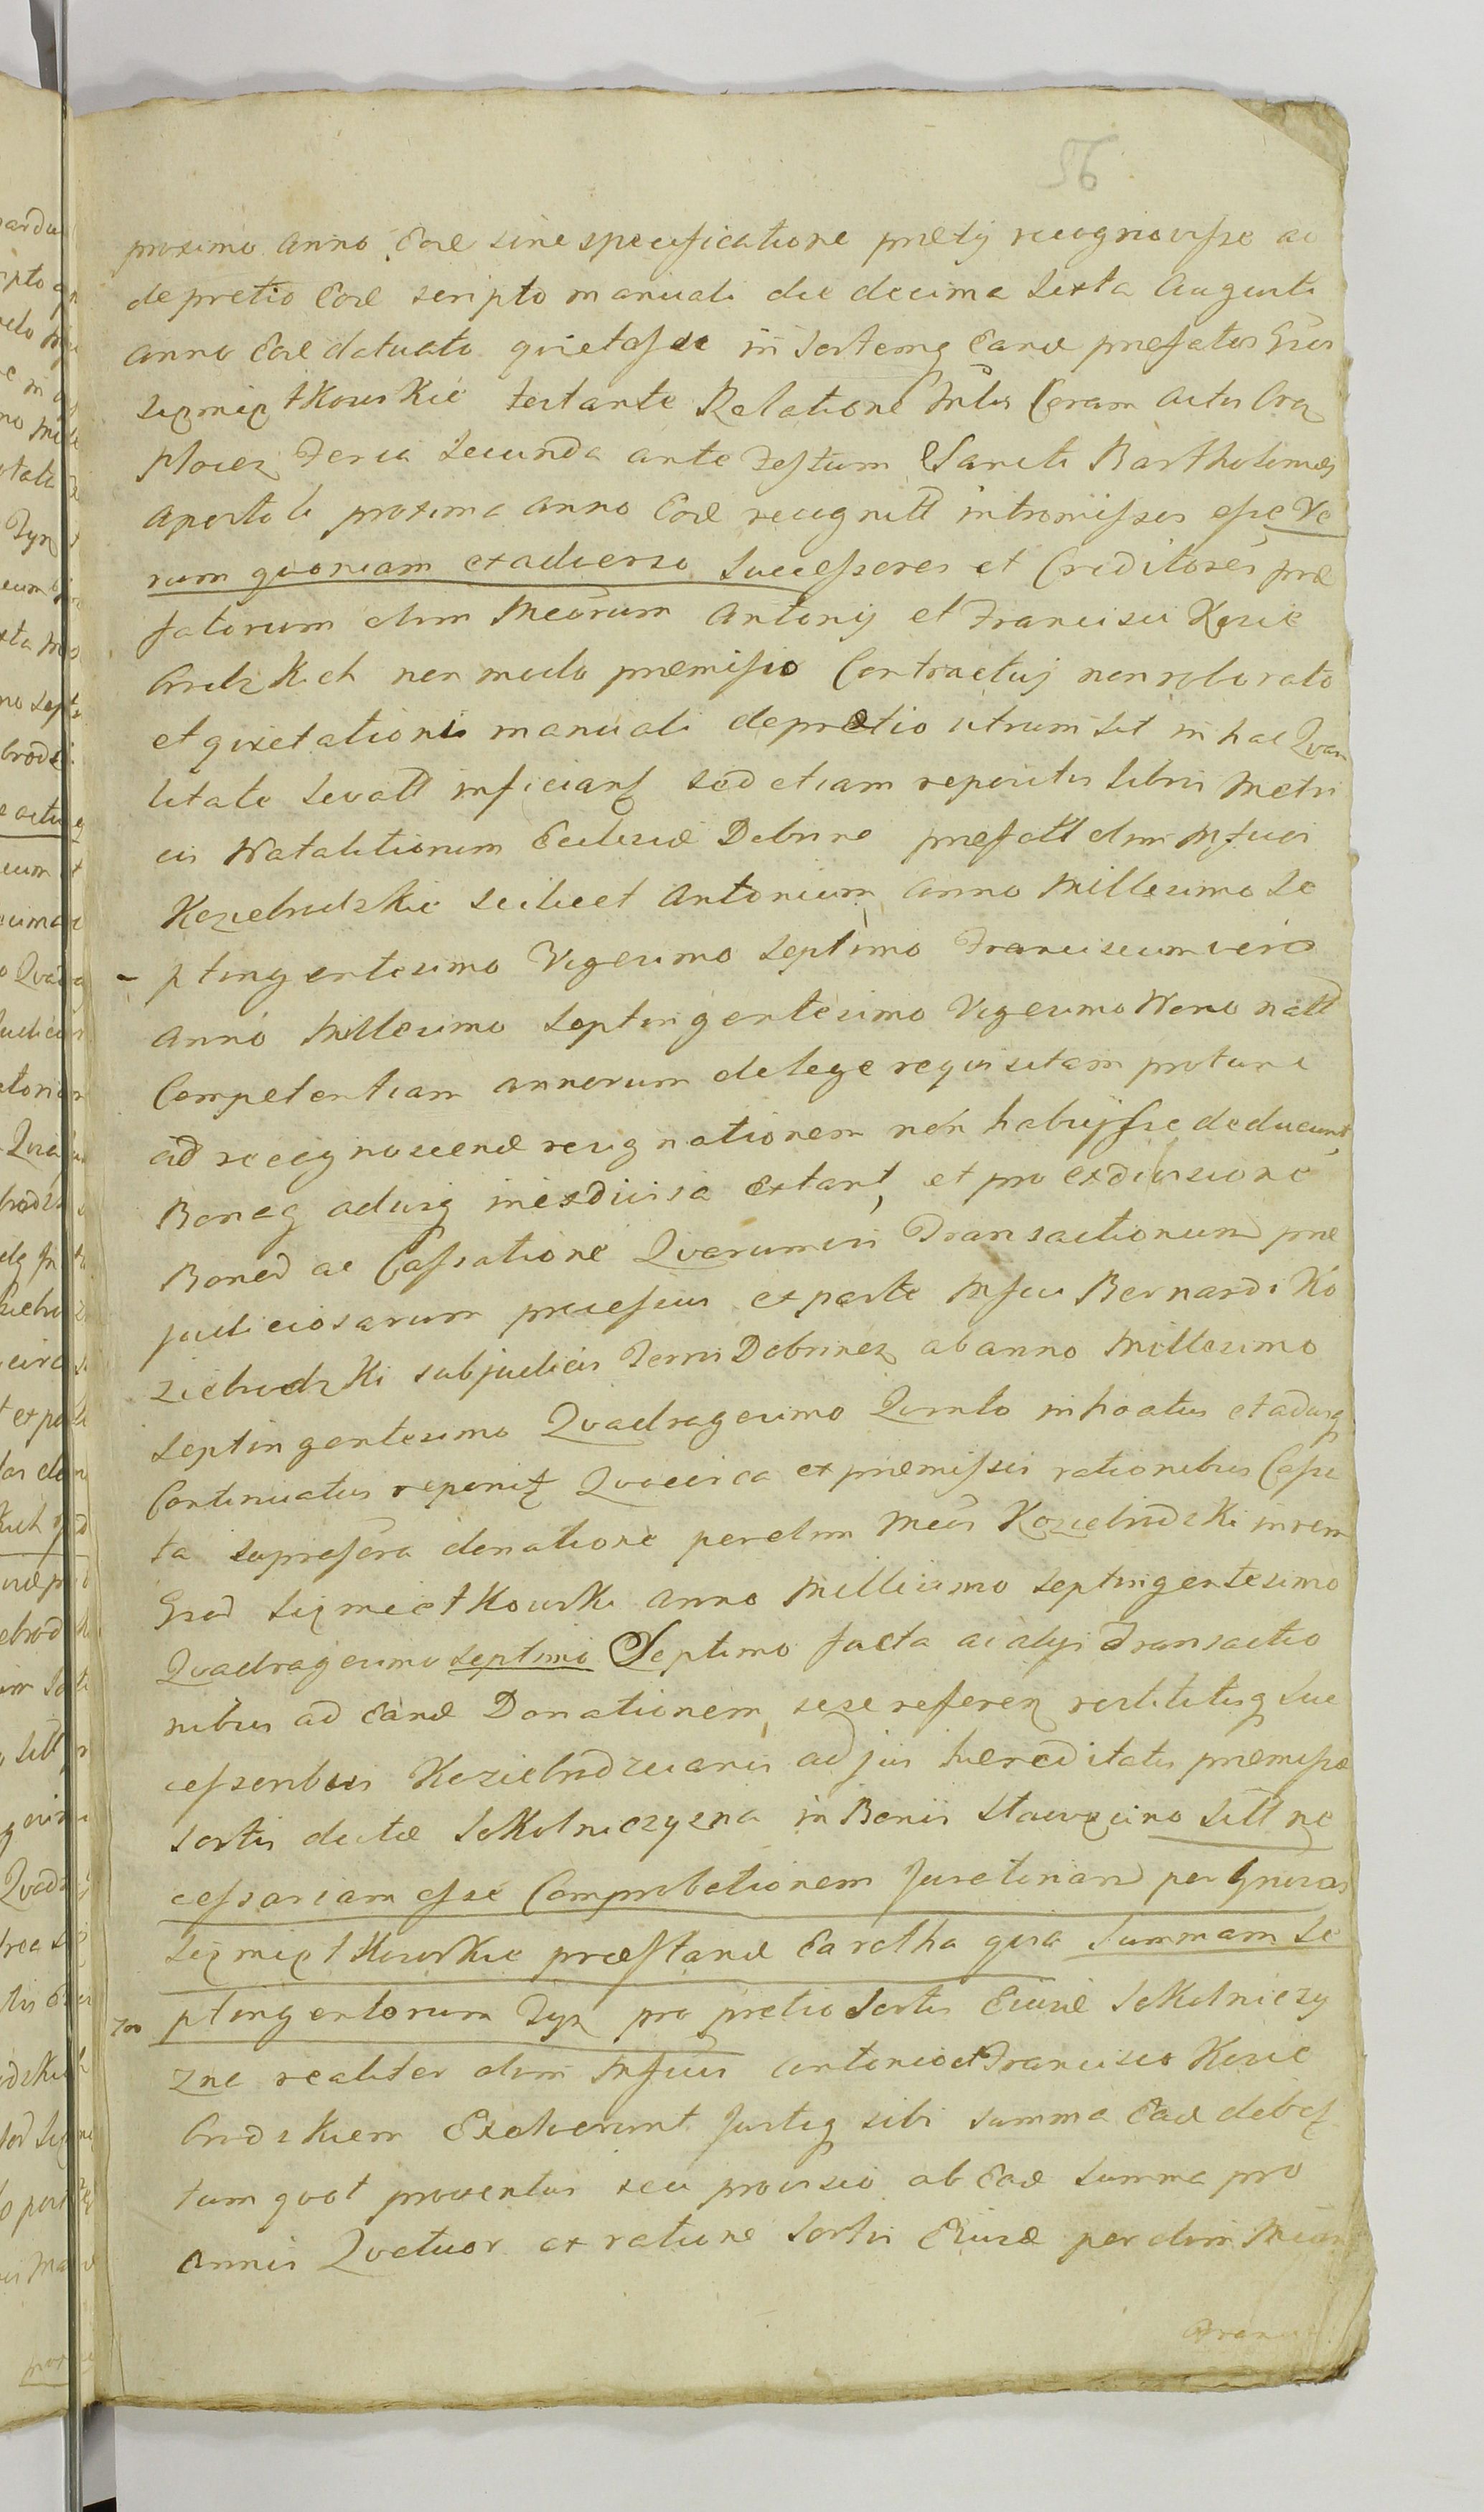 56
proximo anno Eod sine specificatione pretij recognovisse ac
de pretio Eod scripto manuali die decima Sexta Augusti
anno Eod datuato quietasse in Sortemq Eand præfatos Gsos
Sięmiątkowskie testante Relatione Mtlis Coram actis Crą
Płocen Feria Secunda ante Festum Sancti Bartholomæi
Apostoli proxima anno Eod recognitt intromissos esse Ve
rum quoniam ex adverso Successores et Creditores præ
fatorum olim Mcorum Antonij et Francisci Kozie
brodzkich non modo præmisso Contractuj non roborato
et quietationi manuali de prætio utrum sit in hac Quan
titate levatt inficiant sed etiam repositis libris Metri
cis Natalitiorum Ecclesiæ Dobrine præfatt olim Mfcos
Koziebrodzkie scilicet Antonium anno Millesimo Se
ptingentesimo Vigesimo Septimo Franciscum vero
anno Millesimo Septingentesimo Vigesimo Nono natt
Competentiam annorum de lege requisitam pro tunc
ad recognoscend resignationem non habuisse deducunt,
Bonaq adusq inexdivisa Extant, et pro exdivisione
Bonod ac Cassatione Quarumvis Transactionum præ
judiciosarum processus ex parte Mfci Bernardi Ko
ziebrodzki sub judiciis Terris Dobrinen ab anno Millesimo
Septingentesimo Quadragesimo Quinto inchoatus et adusq
Continuatus reponitr Quocirca ex præmissis rationibus Cassa
ta suprascra donatione per olim Mcos Koziebrodzki in rem
Gsod Sięmiątkowski anno Millesimo Septingentesimo
Quadragesimo Septimo Septimo facta ac alijs Transactio
nibus ad Eand Donationem, sese referen restitutisq Suc
cessoribus Koziebrodzcianis ad jus hæreditatis præmissæ
Sortis dictæ Sokolniczyzna in Bonis Stawęcino Sitt ne
cessariam esse Comprobationem Juratoriam per Gnosos
Sięmiątkowskie præstand Ea rotha quia Summam Se
700 ptingentorum Tyn pro pretio Sortis Eiusd Sokolniczy
zne realiter olim Mfcis Antonio et Francisco Kozie
brodzkiem Exolverunt Justeq sibi summa Ead debet
tum quot proventus seu provisio ab Ead Summa pro
annis Quatuor ex ratione Sortis Eiusd per olim Mcum